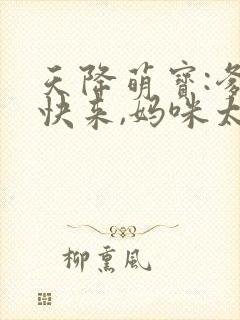 天降萌宝:爹
快来,妈咪太
柳熏风